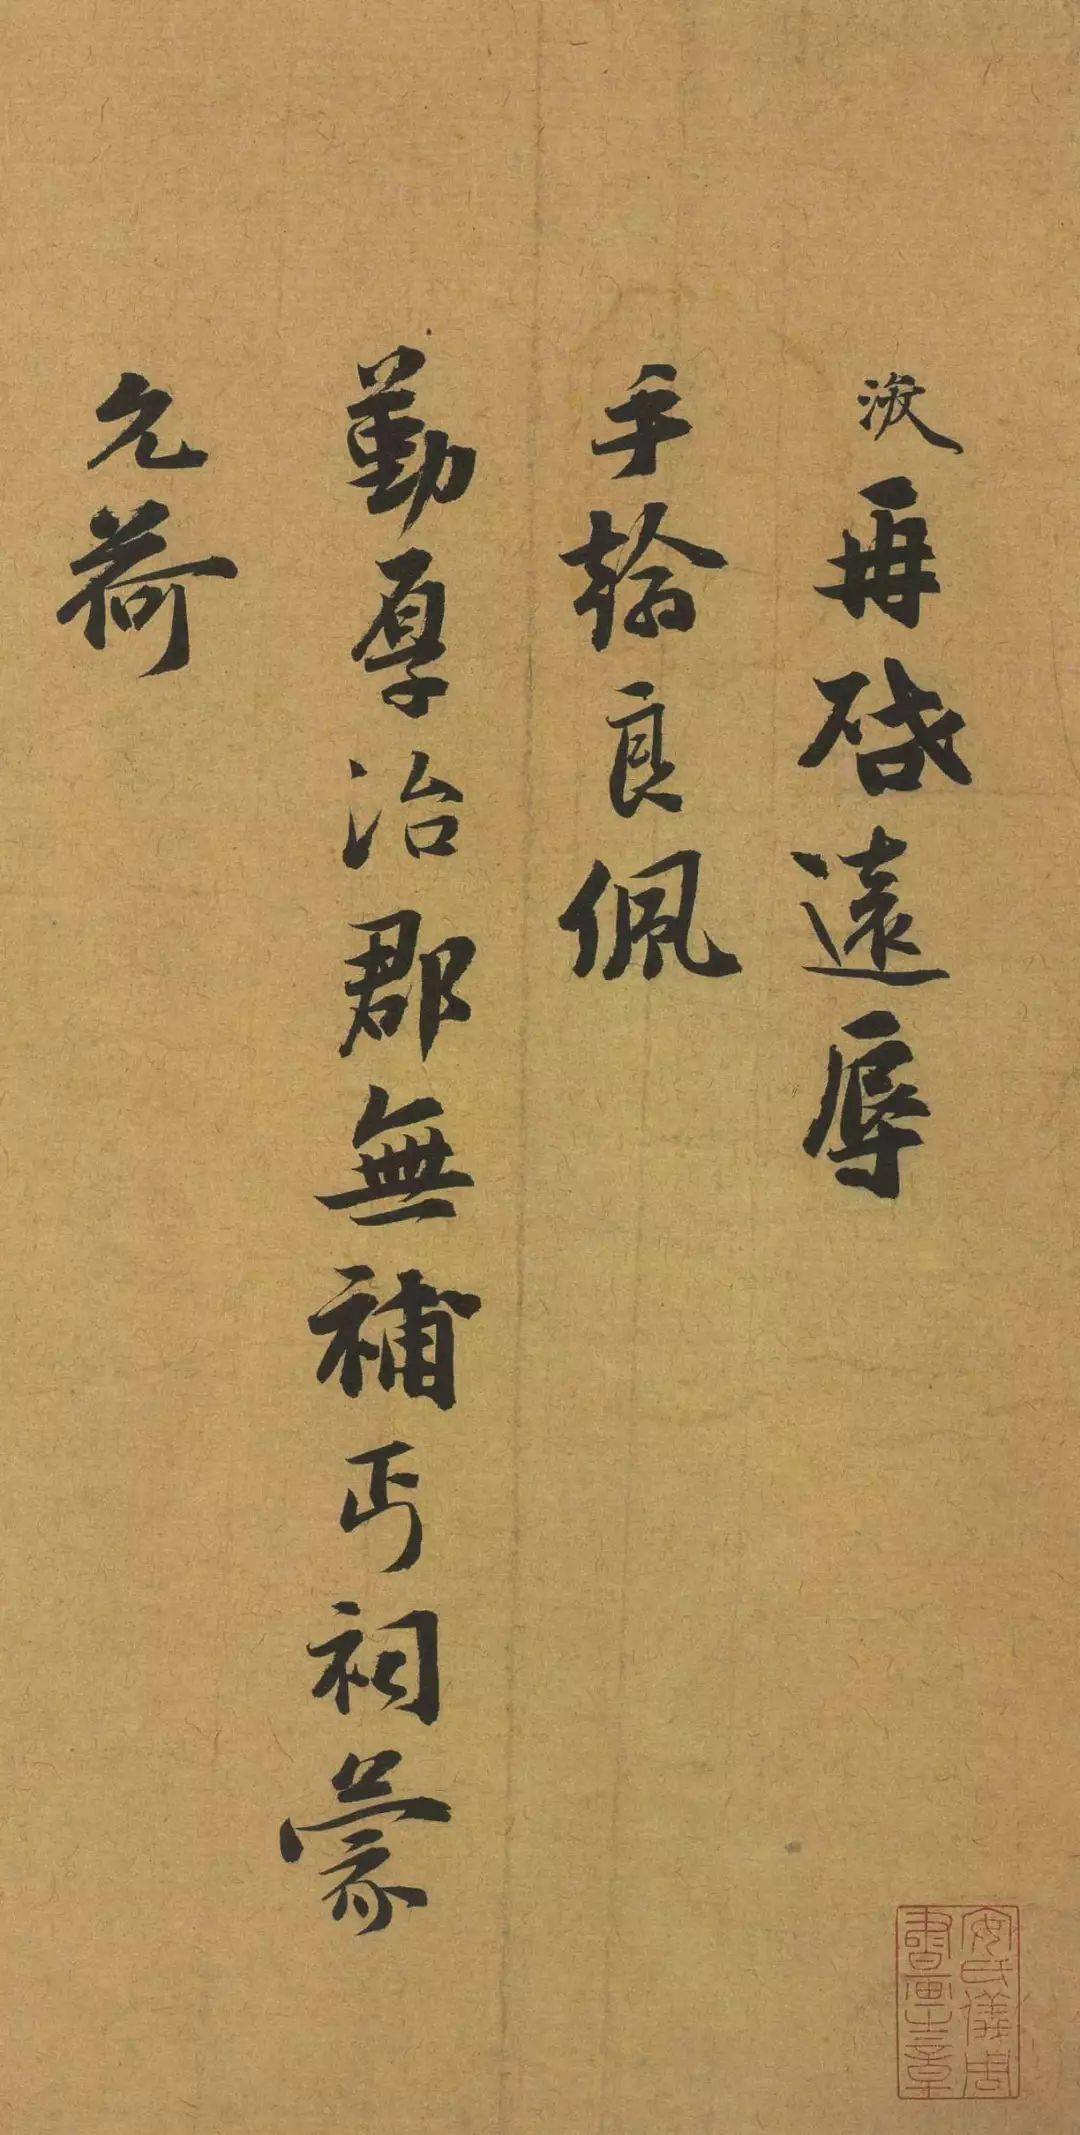 再啓遠辱
手翰良佩
勤厚治郡無補丐祠蒙
允荷
安氏儀周
書畫之章